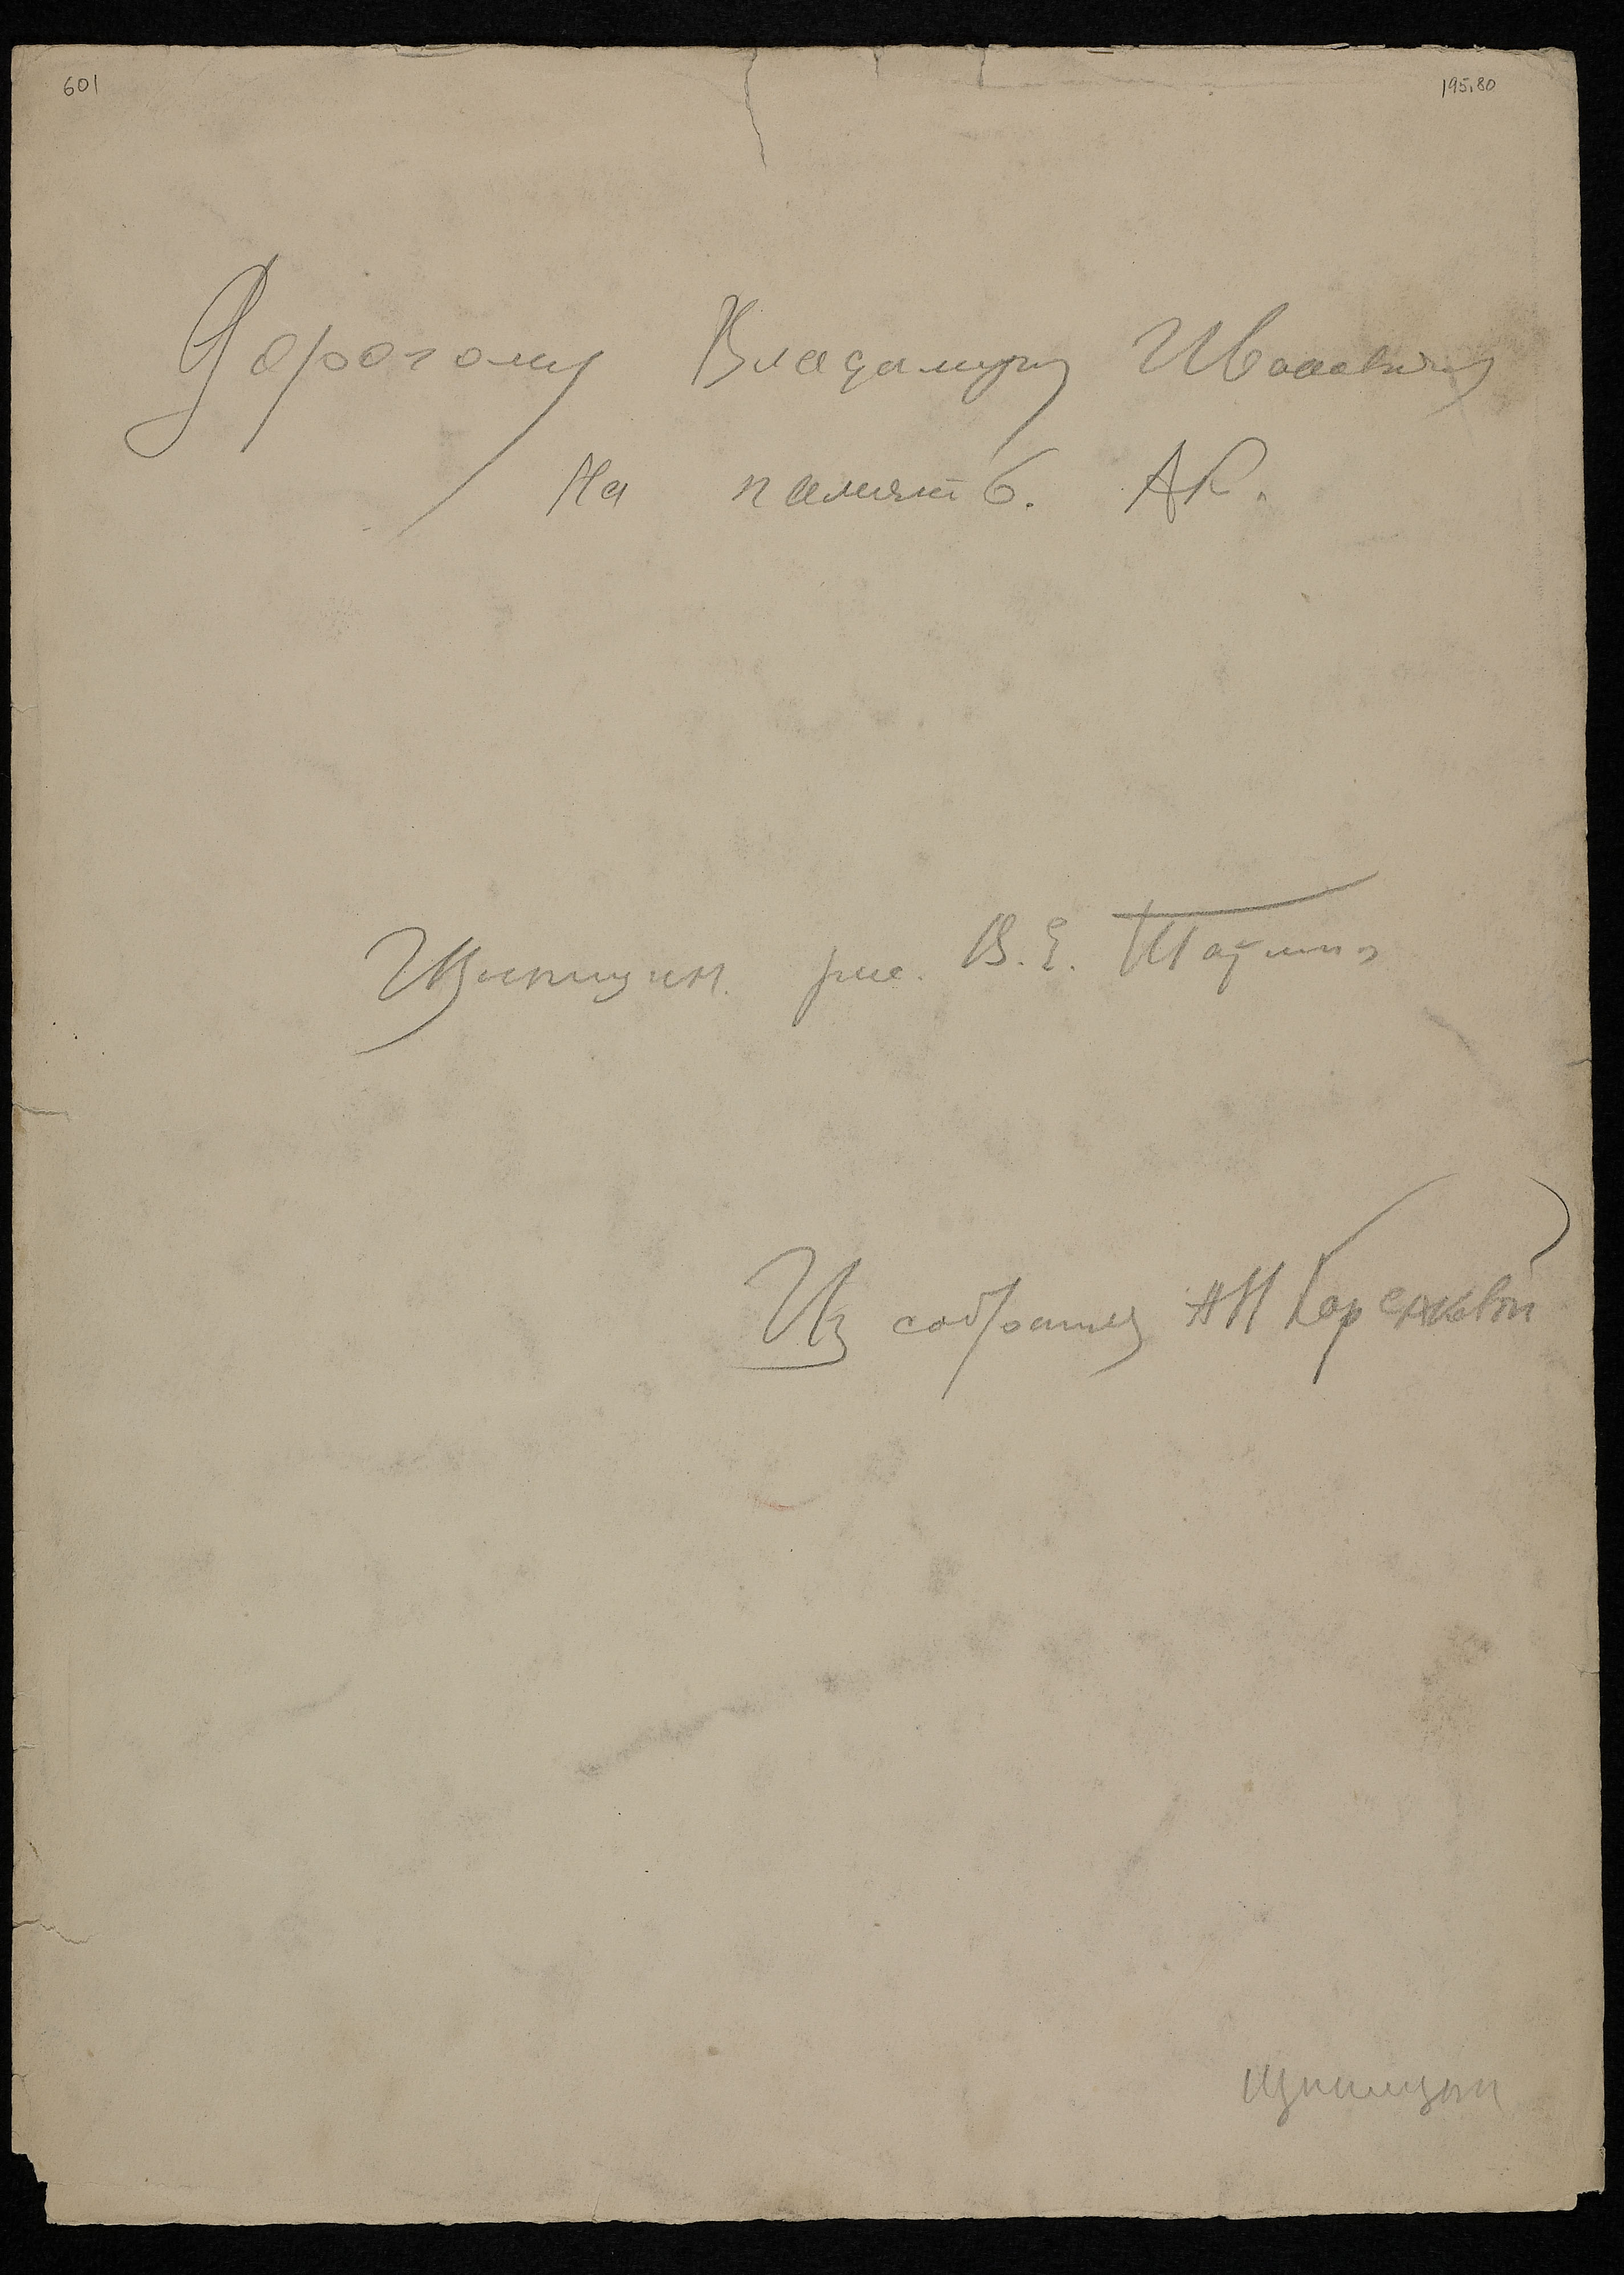 601
195.80
Дорогому Владимиру Ивановичу
На память. АК.
Щипицын. рис. В. Е. Татлин
Из собрания АН Кореневой
Щипицын